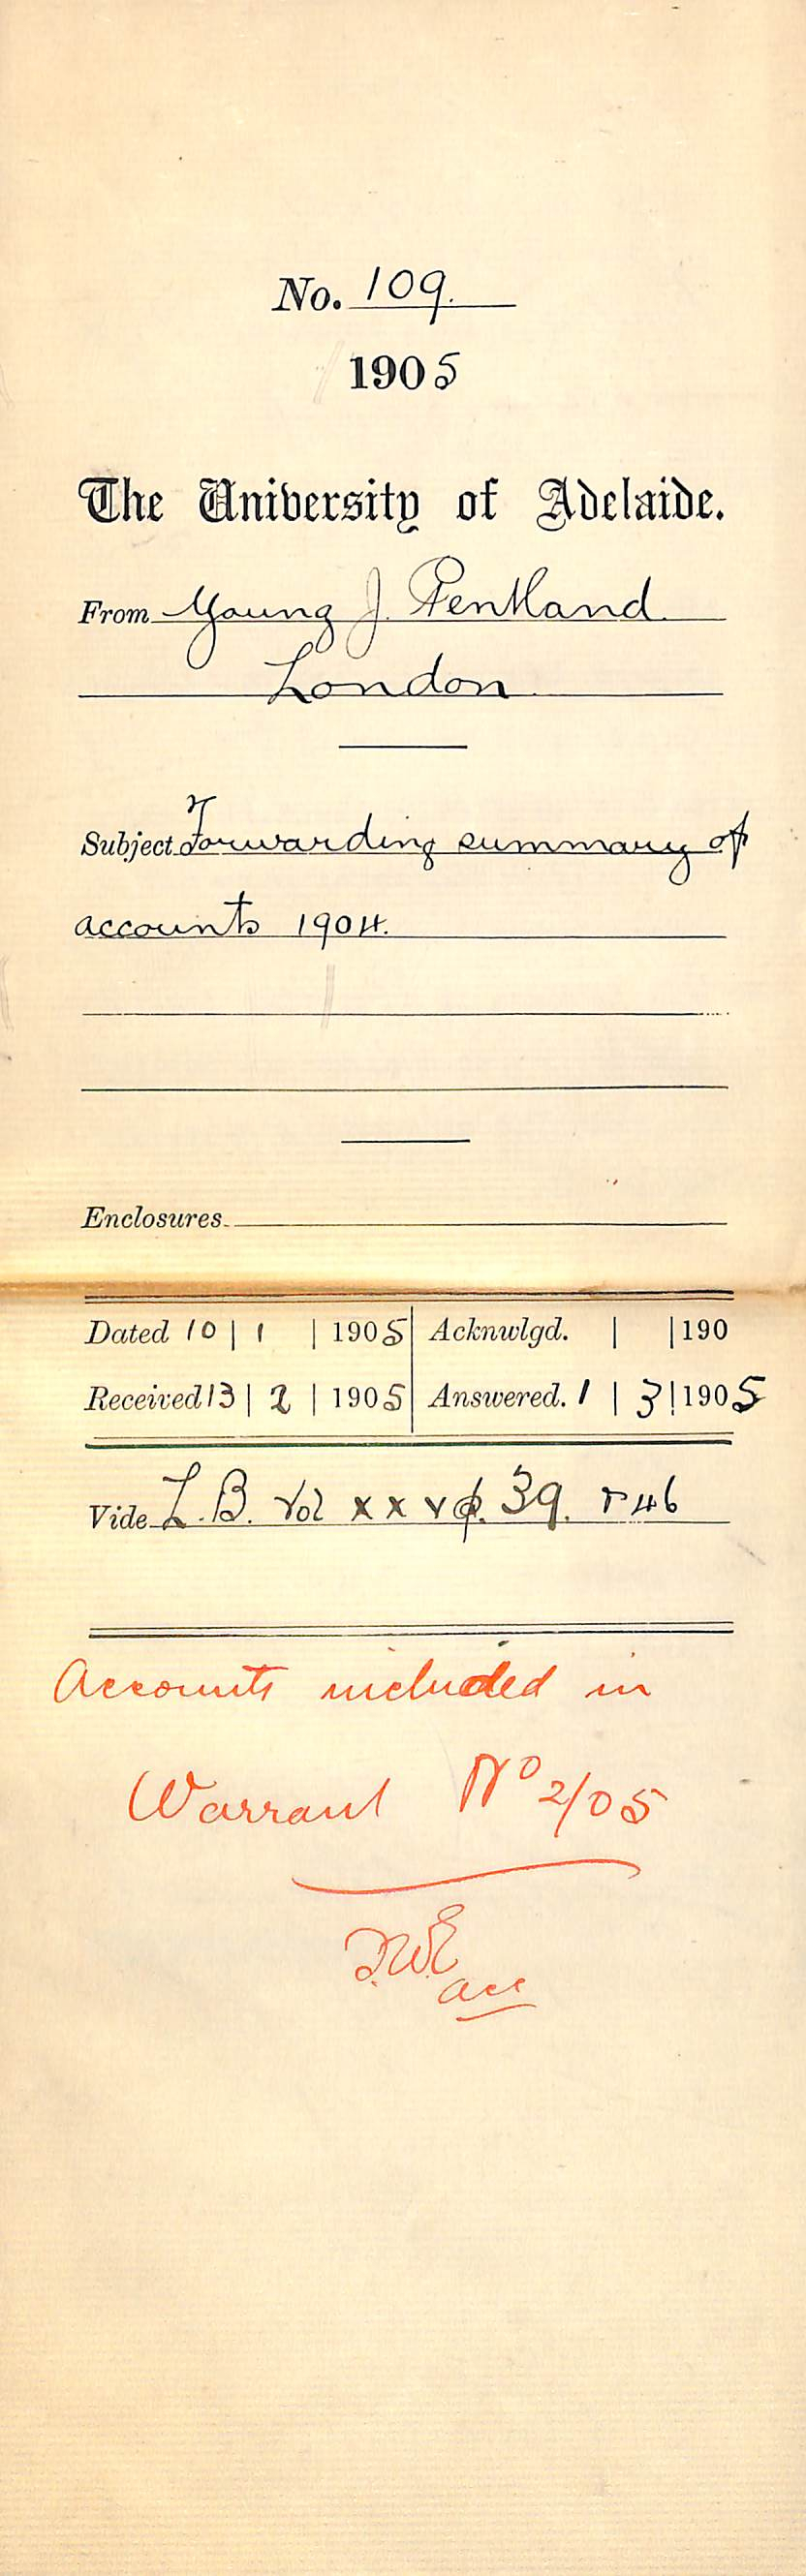 No. 109.
1905
The University of Adelaide.
From Young J. Pentland
London
Subject Forwarding summary of
accounts 1904.
Enclosures
Dated 10 | 1 | 1905 Acknwlgd. | | 190
Received 13 | 2 | 1905 Answered. 1 | 3 | 1905
Vide L.B. Vol XXV p. 39. & 46
Accounts included in
Warrant No 2/05
acc